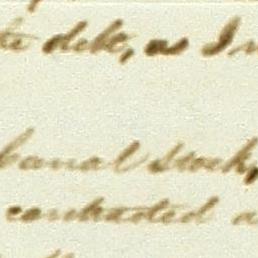 debt, as I
canal stock,
contracted